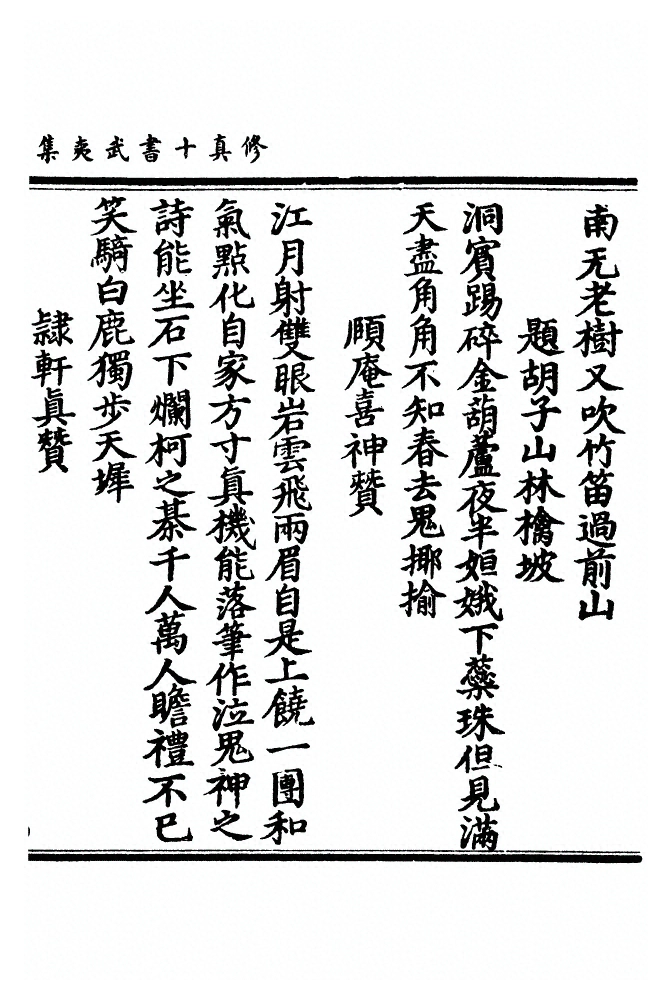 修真十書武夷集
南无老樹又吹竹笛過前山
題胡子山林檎坡
洞賓踢碎金葫蘆夜半姮娥下蘂珠但見滿
天盡角角不知春去鬼揶揄
頤庵喜神贊
江月射雙眼岩雲飛兩眉自是上饒一團和
氣點化自家方寸真機能落筆作泣鬼神之
詩能坐石下爛柯之棊千人萬人瞻禮不已
笑騎白鹿獨步天墀
隸軒真贊